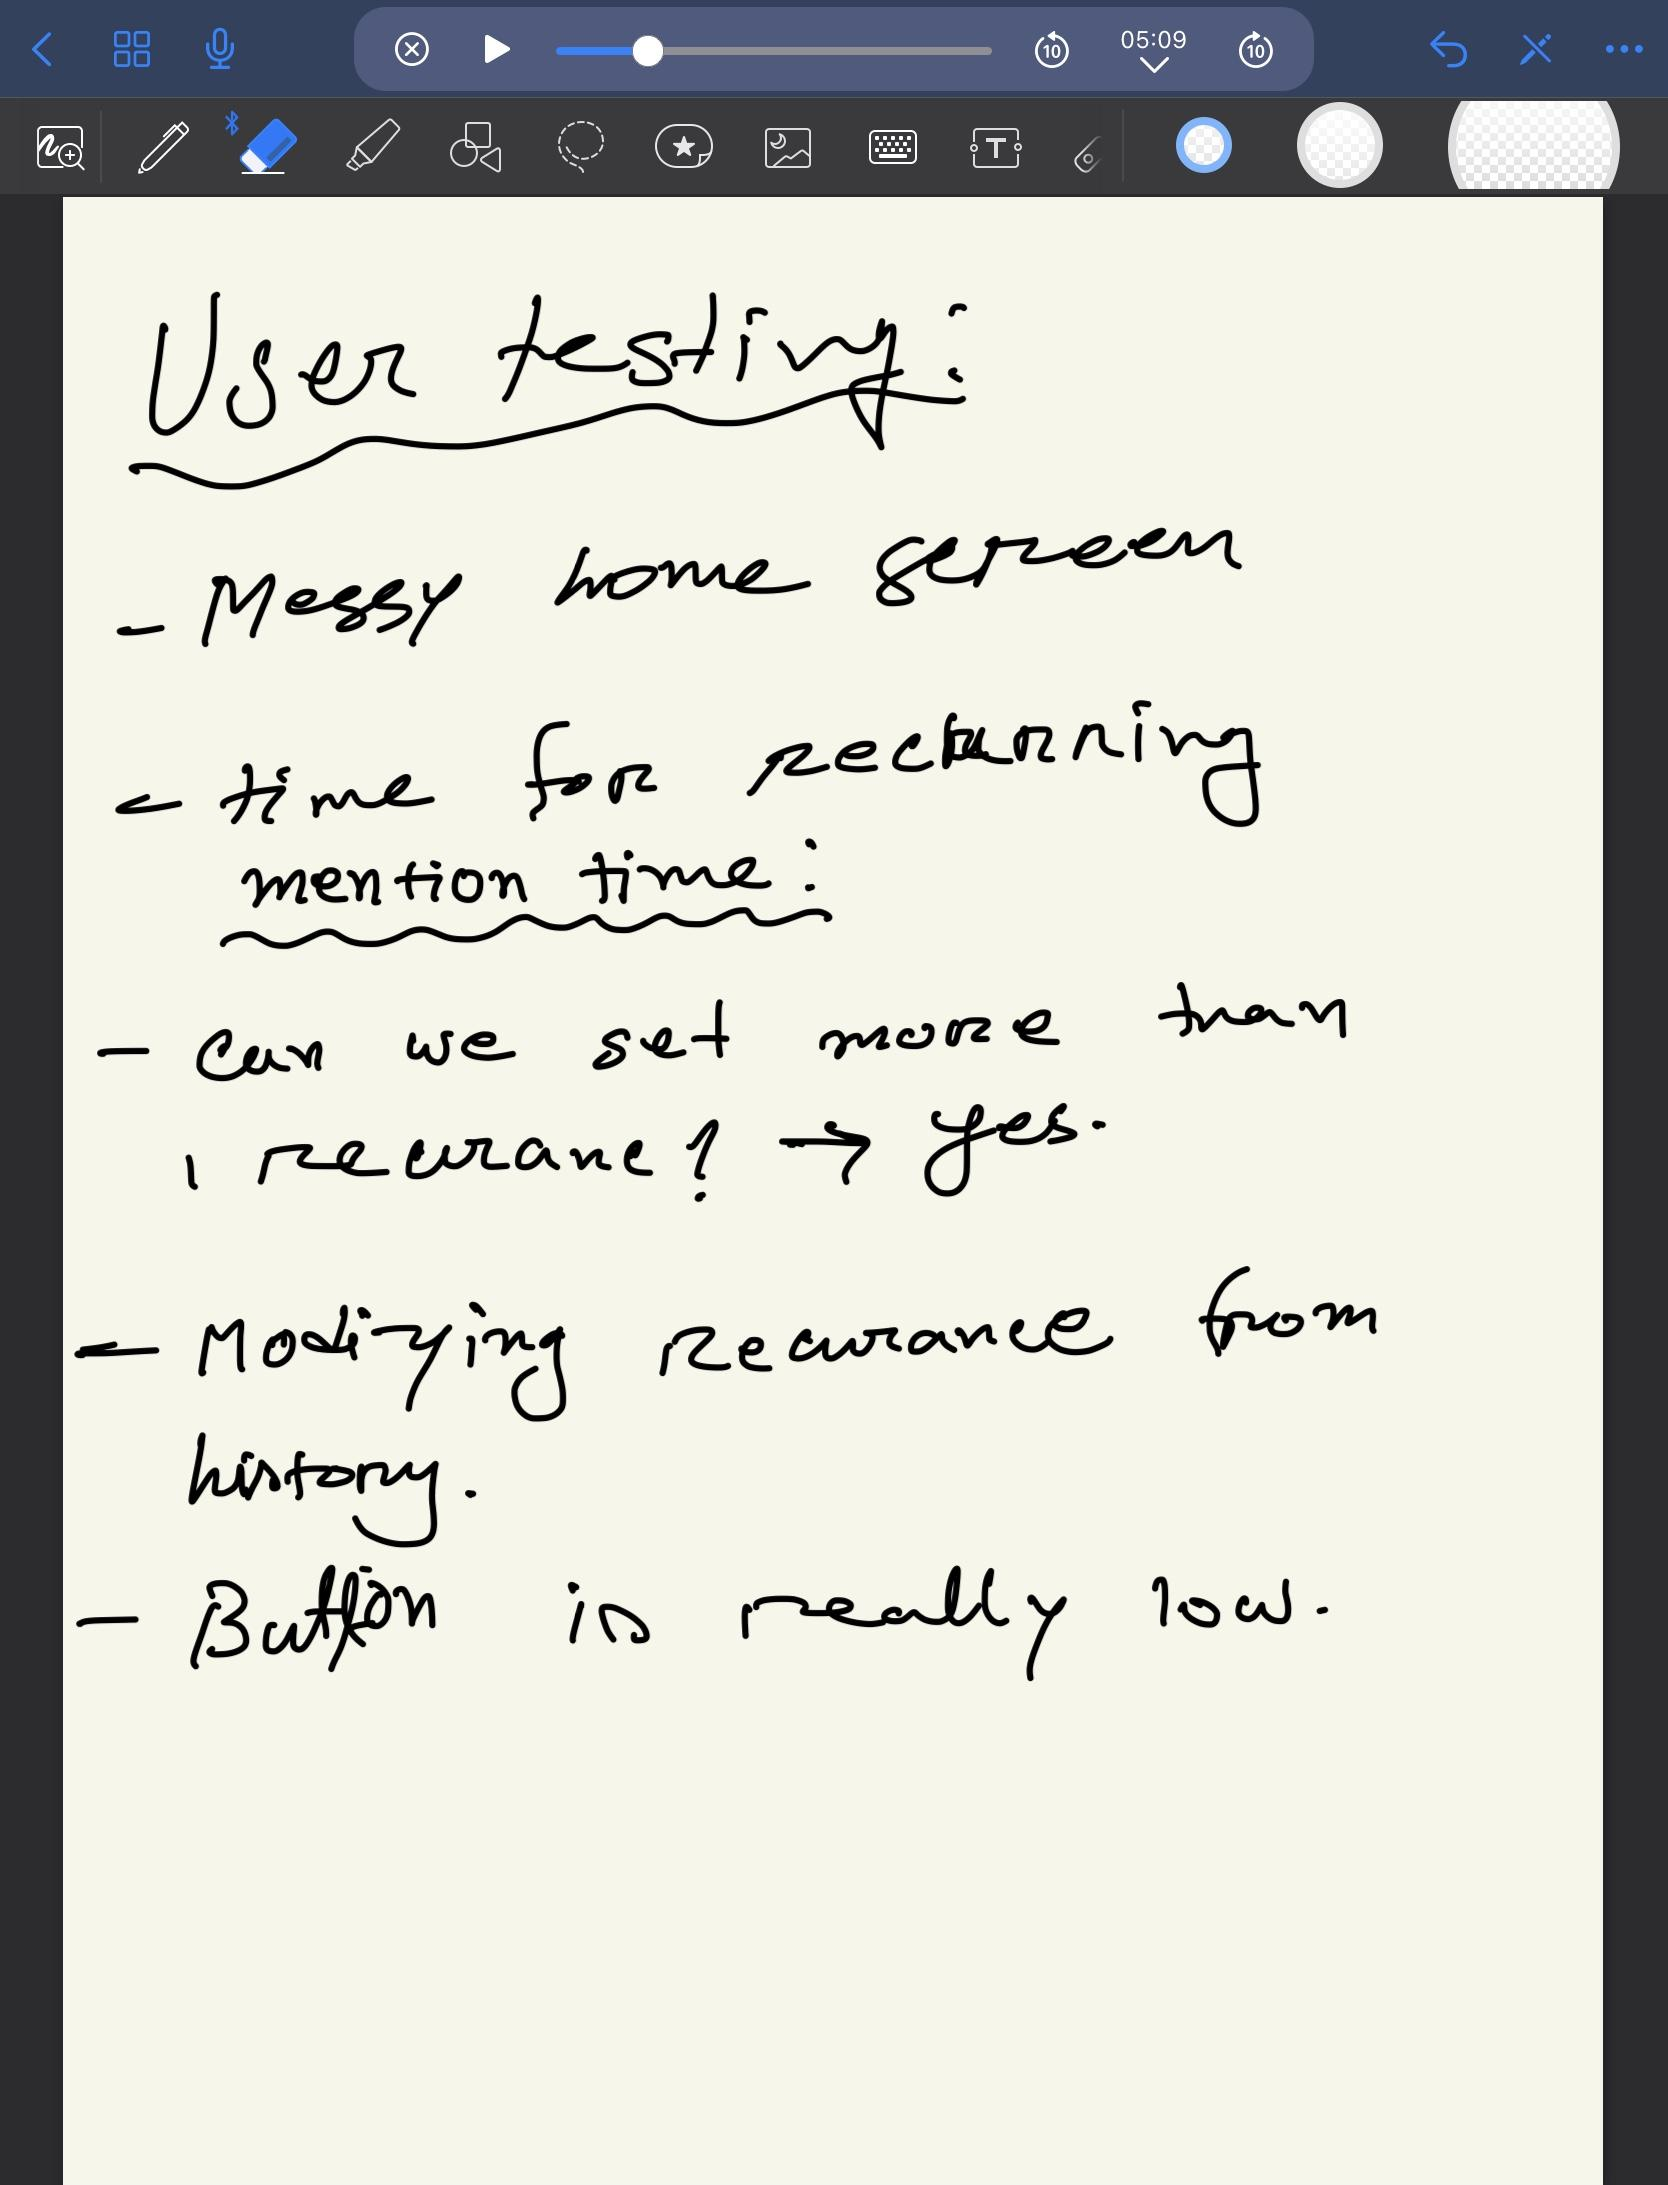 05:09
User testing:
- Messy home screen
- time for recurning
mention time:
- can we set more than
1 recurance? → yes.
- Modifying recurance from
history.
- Button is really low.